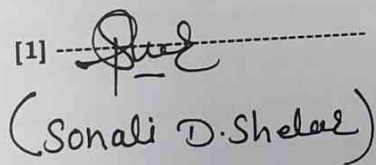 [1]
(Sonali D. Shelar)